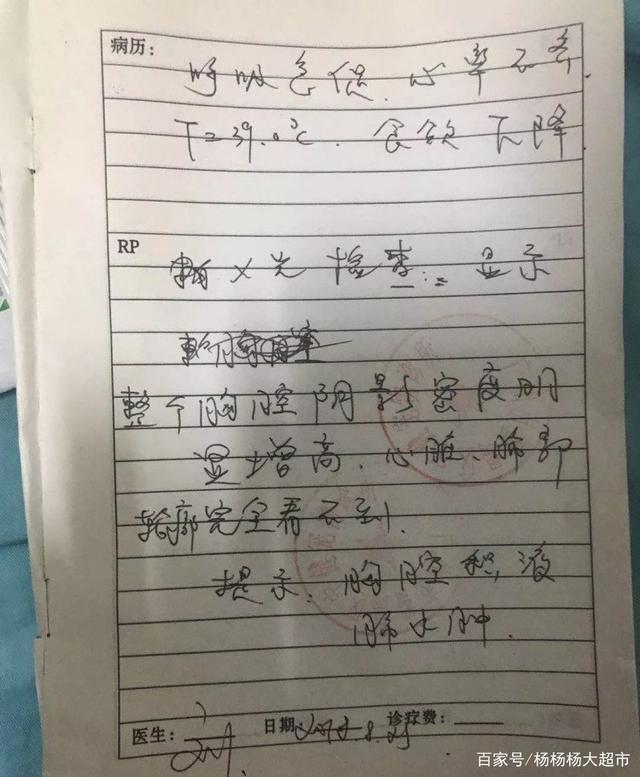 病历:
呼吸急促.心率不齐.
T=39.0℃. 食欲下降
RP
X光检查: 显示
整个胸腔阴影密度明
显增高.心脏、肺部
轮廓完全看不到.
提示:胸腔积液
肺水肿.
医生: 日期 诊疗费:
百家号/杨杨杨大超市